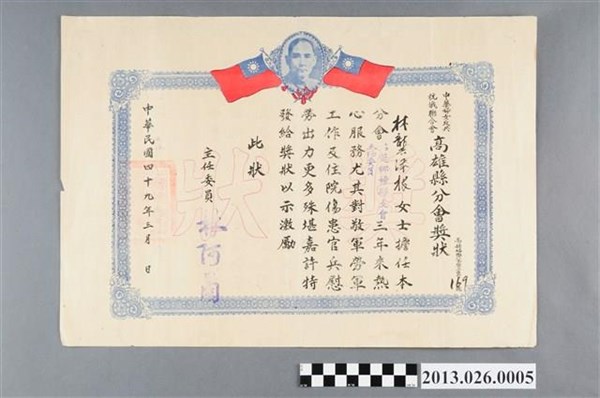 中華婦女反共
抗俄聯合會
高雄縣分會獎狀
169
林龔深根女士擔任本
分會
三年來熱
心服務尤其對敬軍勞軍
工作及住院傷患官兵慰
勞出力更多殊堪嘉許特
發給獎狀以示激勵
此狀
主任委員
中華民國四十九年三月 日
獎狀
2013.026.0005